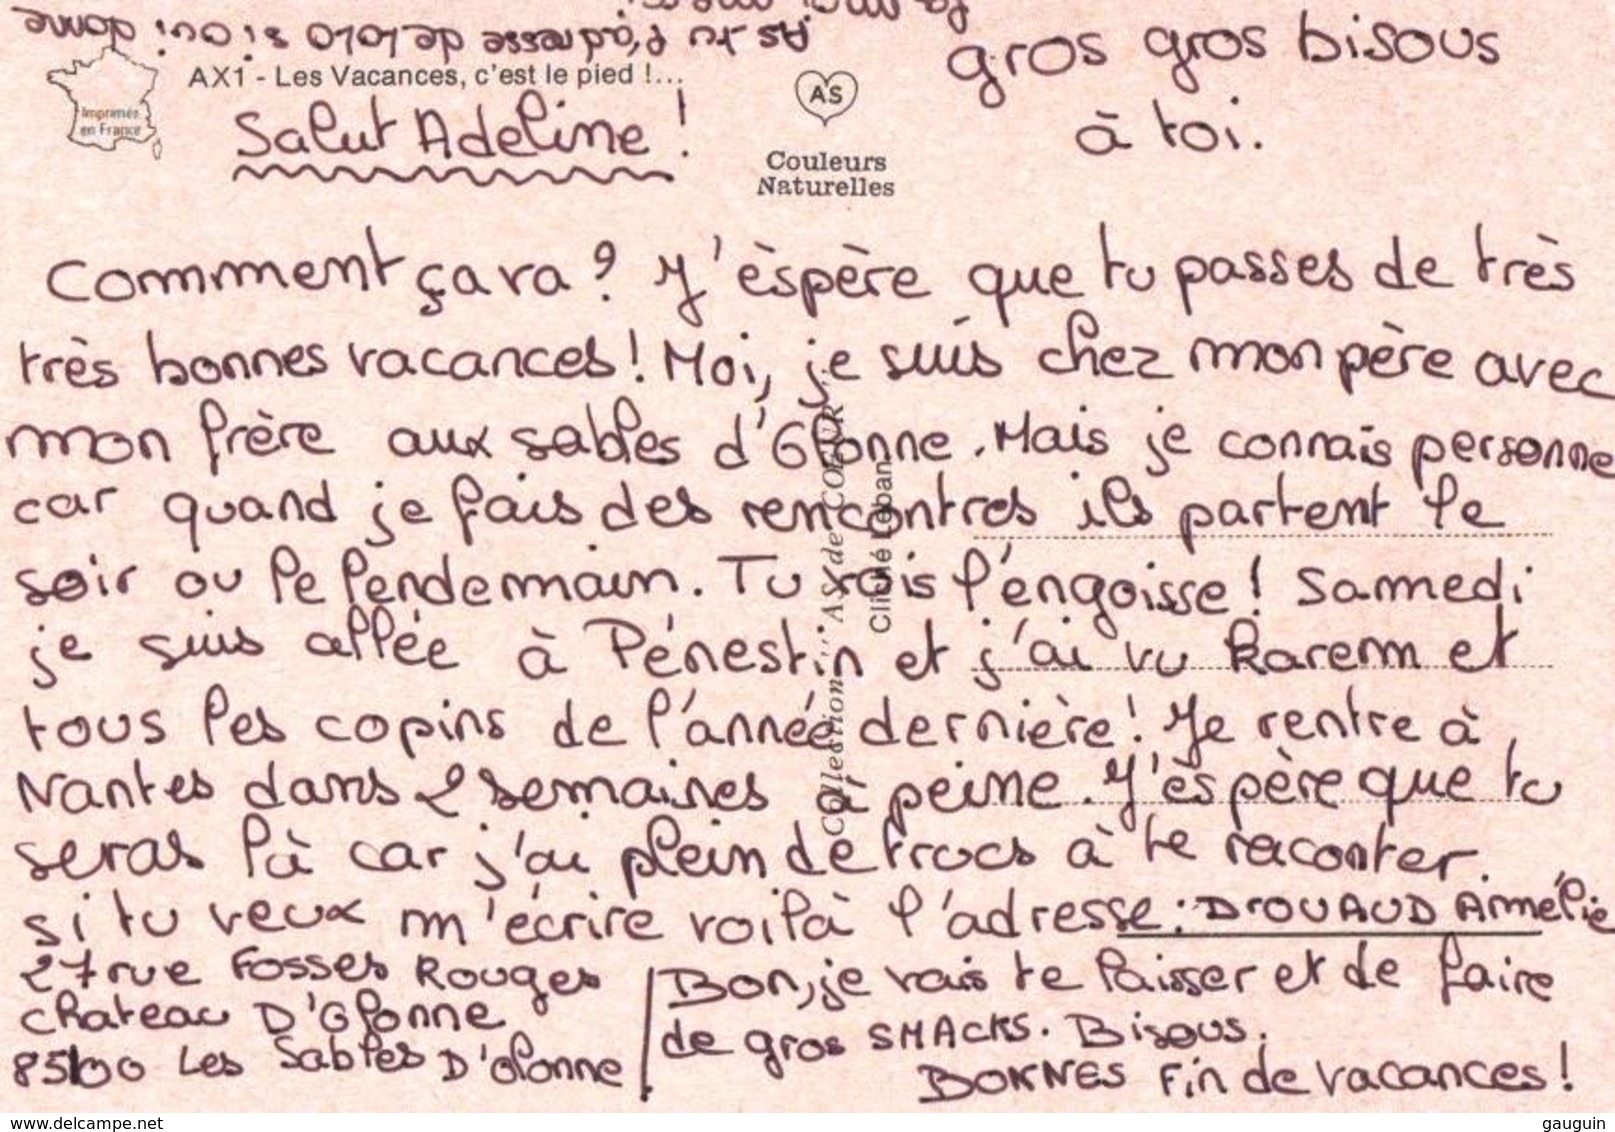 As tu l'adresse de lolo si oui donne
la moi merci
gros gros bisous
à toi.
Imprimée
en France
AX1 - Les Vacances, c'est le pied !...
AS
Couleurs
Naturelles
Salut Adeline !
Comment ça va ? J'èspère que tu passes de très
très bonnes vacances ! Moi, je suis chez mon père avec
mon frère aux sables d'Olonne. Mais je connais personne
car quand je fais des rencontres ils partent le
soir ou le lendemain. Tu vois l'engoisse ! Samedi
je suis allée à Pénestin et j'ai vu karem et
tous les copins de l'année dernière ! Je rentre à
Nantes dans 2 semaines à peine. J'èspère que tu
seras là car j'ai plein de trucs à te raconter.
si tu veux m'écrire voilà l'adresse : DrOUAUD Aimélie
27 rue Fosses Rouges
chateau D'Olonne
85100 Les Sables D'Olonne
Bon, je vais te laisser et de faire
de gros SMACKS. Bisous.
BONNES Fin de vacances !
Collection "AS de CŒUR"
Cliché Leban
www.delcampe.net
gauguin